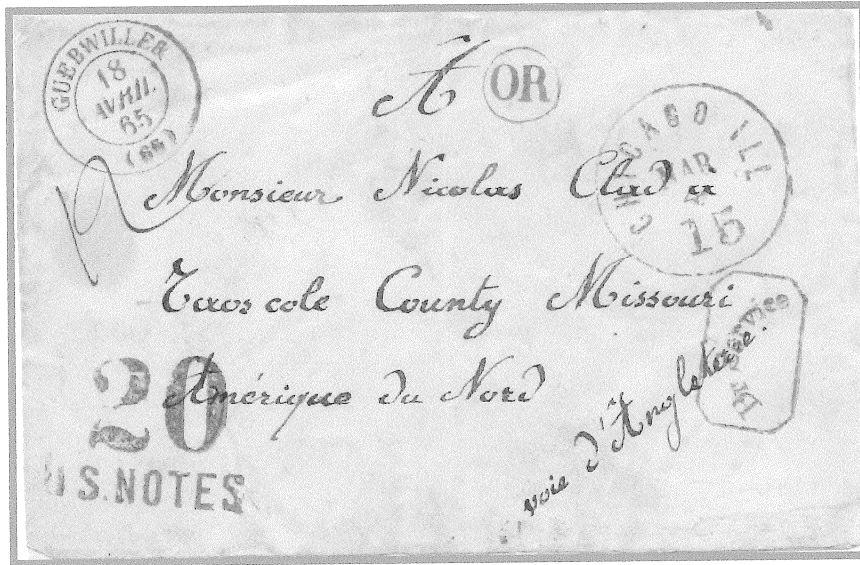 GUEBWILLER
18
AVRIL.
65
(66)
A
OR
CHICAGO ILL
MAR
15
Monsieur Nicolas
Taos cole County Missouri
Amérique du Nord
voie d'Angleterre.
Br Service
20
U S. NOTES